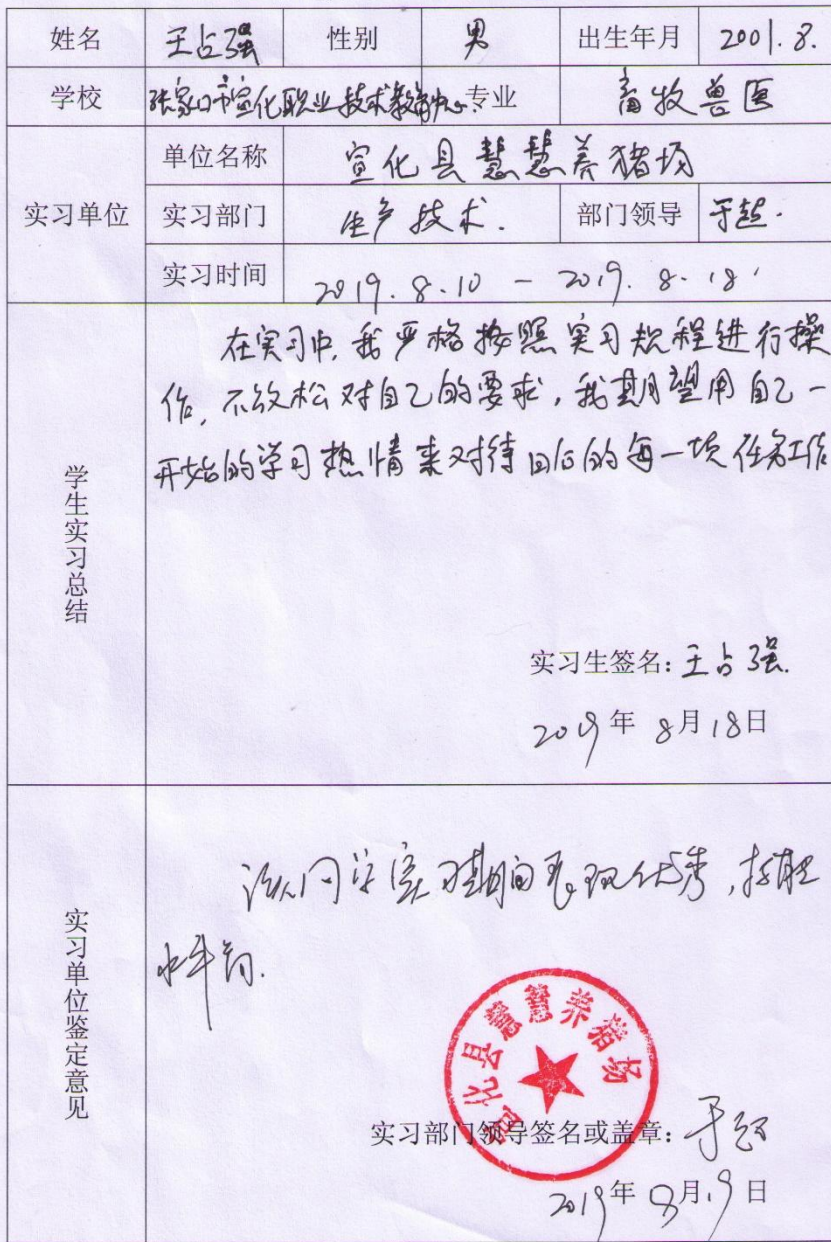 姓名 王占强 性别 男 出生年月 2001.8.
学校 张家口市宣化职业技术教育中心 专业 畜牧兽医
实习单位
单位名称 宣化县慧慧养猪场
实习部门 生产技术. 部门领导 于超.
实习时间 2019.8.10 - 2019.8.18
学生实习总结
在实习中,我严格按照实习规程进行操
作,不放松对自己的要求,我期望用自己一
开始的学习热情来对待日后的每一项任务工作
实习生签名:王占强.
2019年8月18日
实习单位鉴定意见
该同学实习期间表现优秀,技能
水平高.
宣化县慧慧养猪场
实习部门领导签名或盖章:于超
2019年8月19日